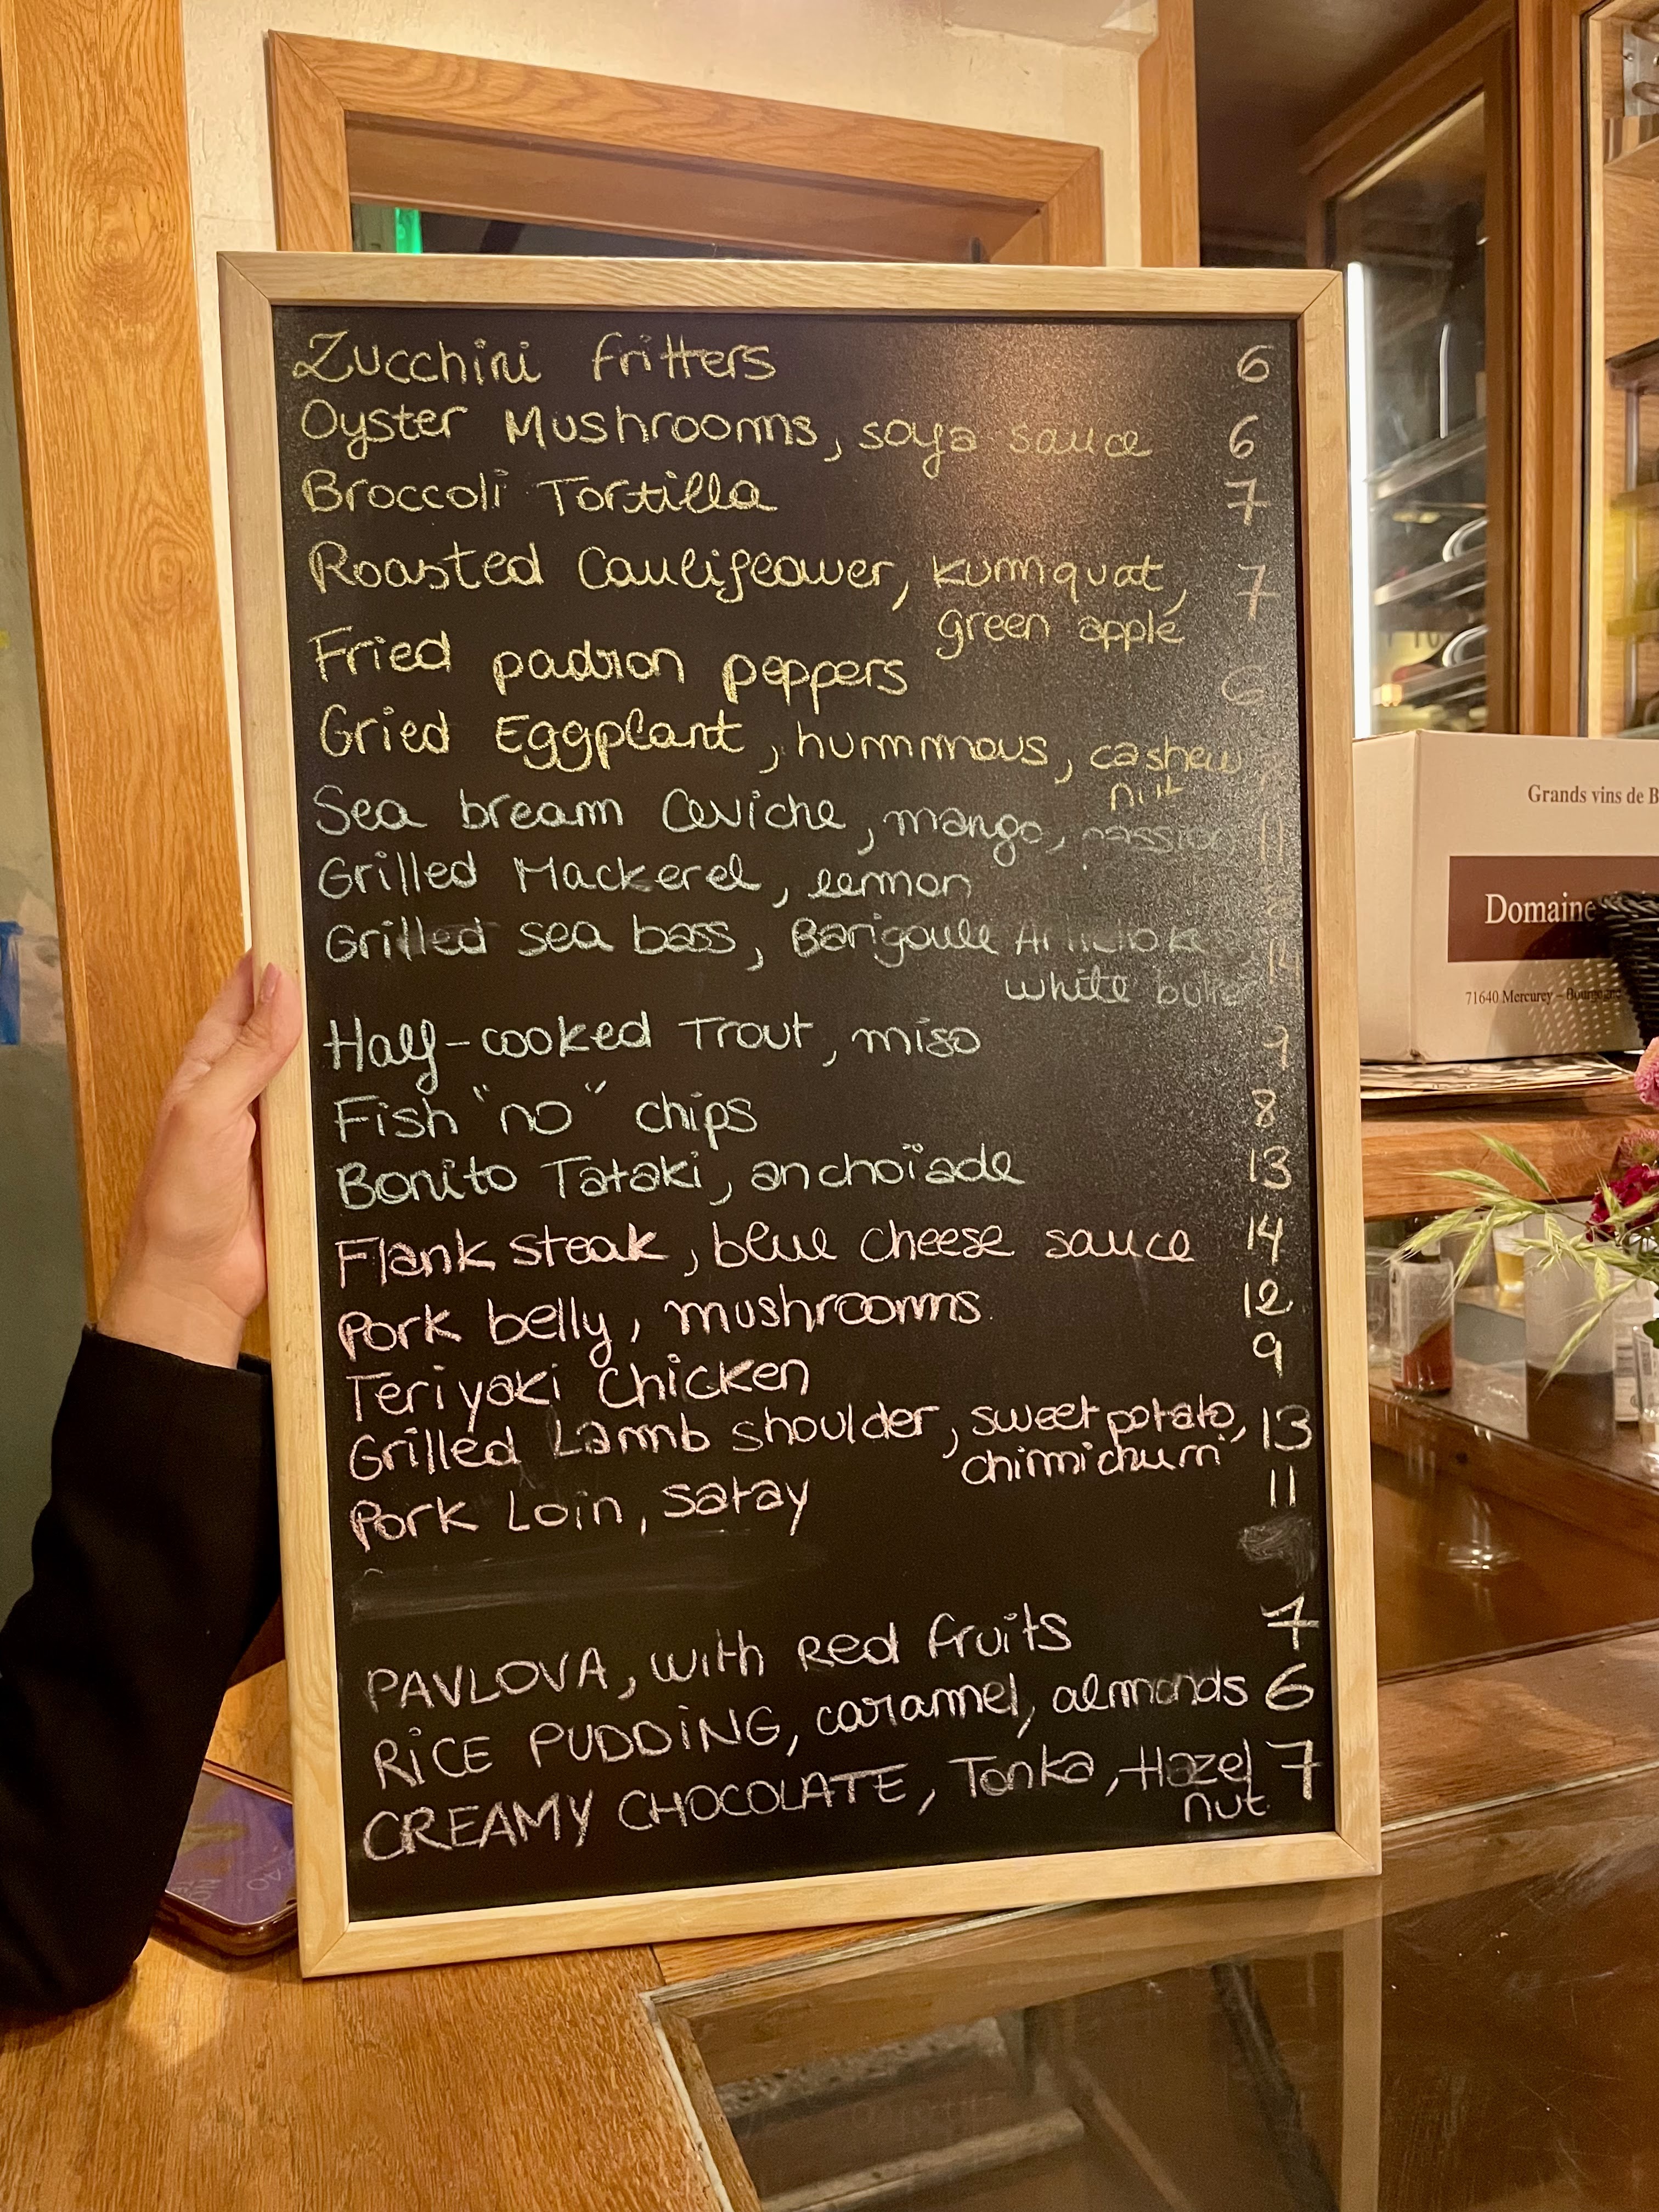 Zucchini fritters 6
Oyster Mushrooms, soya sauce 6
Broccoli Tortilla 7
Roasted Cauliflower, kumquat, 7
green apple
Fried padron peppers 6
Gried Eggplant, hummous, cashew
nut
Sea bream Ceviche, mango, passion 11
Grilled Mackerel, lemon
Grilled sea bass, Barigoule
white
Half-cooked Trout, miso 9
Fish "no" chips 8
Bonito Tataki, anchoïade 13
Flank steak, blue cheese sauce 14
Pork belly, mushrooms 12
Teriyaki Chicken 9
Grilled Lamb shoulder, sweet potato, 13
chimichurri
Pork Loin, satay 11
PAVLOVA, with Red fruits
RiCE PUDDiNG, caramel, almonds 6
CREAMY CHOCOLATE, Tonka, Hazel 7
nut
Grands vins de B
Domaine
71640 Mercurey - Bourgogne